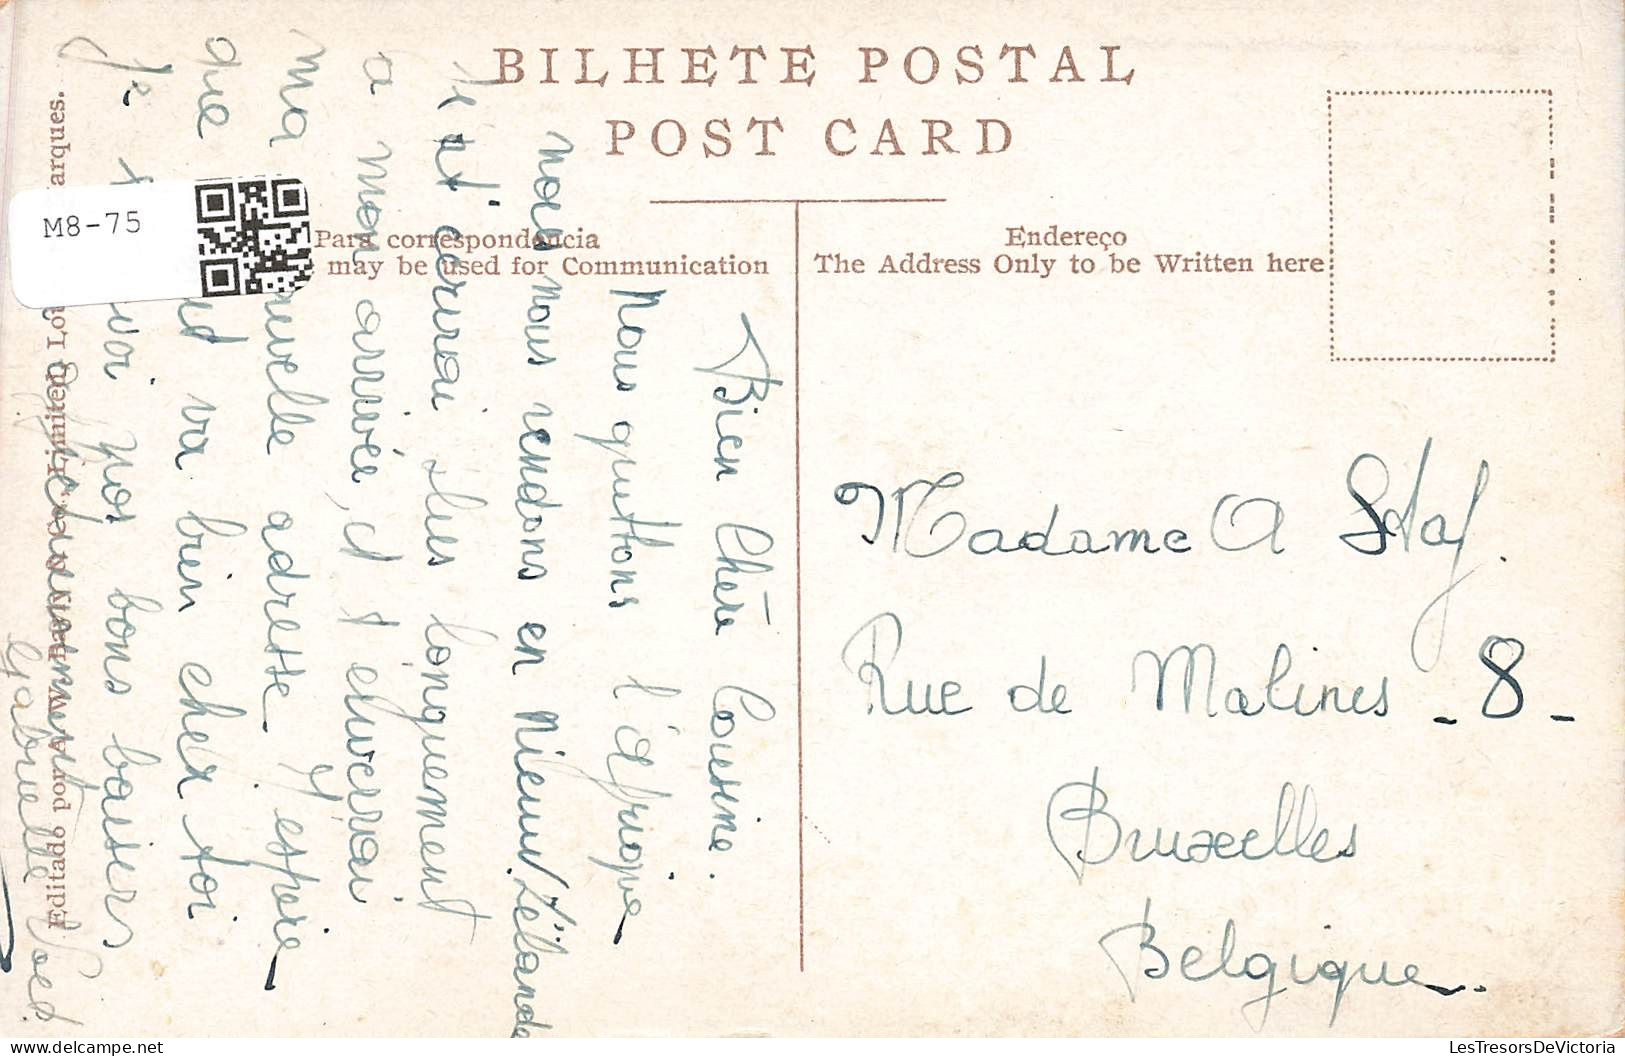 BILHETE POSTAL
POST CARD
Para correspondencia
may be used for Communication
Endereço
The Address Only to be Written here
M8-75
Bien Chère Cousine.
Nous quittons l'afrique
nous nous rendons en Nieuw Zélande
Je t'écrirai plus longuement
a mon arrivée, et t'enverrai
ma nouvelle adresse. J'espère
que va bien chez toi
Je nos bons baisers
affectueusement
Gabrielle
Madame A Staf.
Rue de Malines - 8 -
Bruxelles
Belgique.
Editado por A. W. Limited Lou arques.
LesTresorsDeVictoria